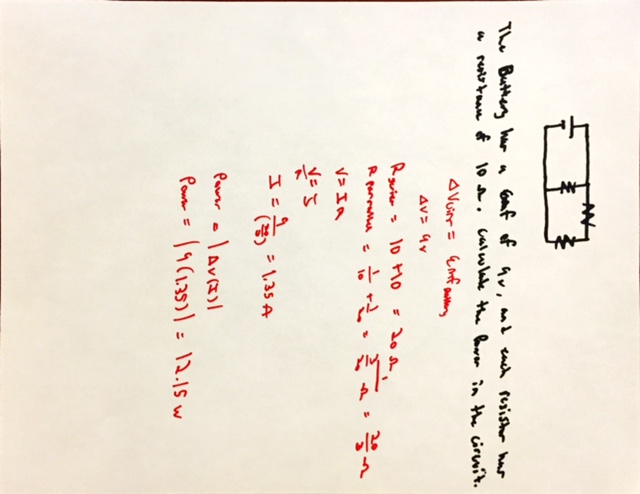 The Battery has a emf of 9v, and each resistor has
a resistance of 10 Ω. calculate the Power in the circuit.
ΔVcirc = emf battery
ΔV = 9v
R series = 10 + 10 = 20 Ω
R parallel = 1/10 + 1/20 = 3/20 Ω = 20/3 Ω
V = IR
V/R = I
I = 9/(20/3) = 1.35 A
Power = |ΔV(I)|
Power = |9(1.35)| = 12.15 W